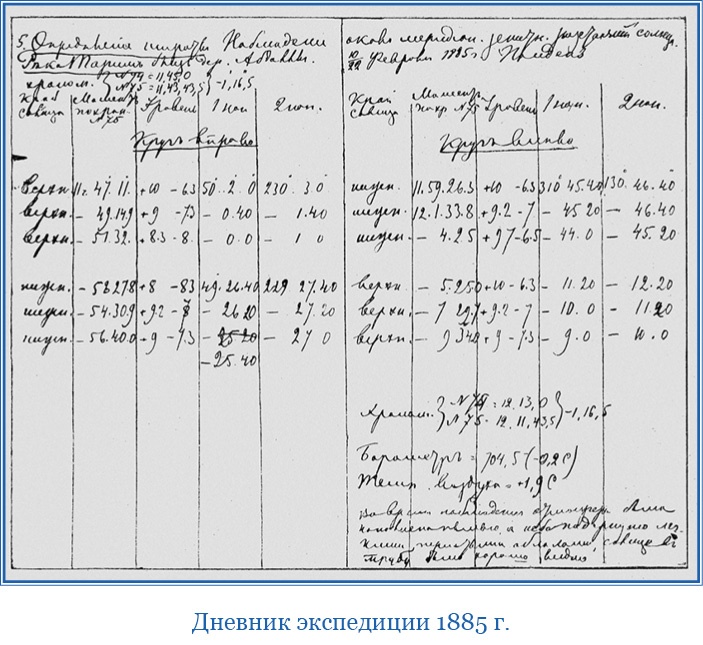 5. Определенія широты. Наблюденія
Река Таримъ близъ дер. Абдаллы.
хроном. } N74 = 11,45,0
N75 = 11,43,43,5 } -1,16,5
Край солнца Моментъ хроном. N75 Уровень 1 нон. 2 нон.
Кругъ вправо
верхн. 11. 47. 11. +10 -6.3 50. 2. 0 230. 3. 0
верхн. - 49.14,9 +9 -7,3 - 0.40 - 1.40
верхн. - 51.32. +8.3 -8. - 0.0 - 1 0
нижн. - 53 27,8 +8 -8,3 49. 26.40 229 27.40
нижн. - 54.30,9 +9,2 -8 - 26 20 - 27.20
нижн. - 56.40.0 +9 -7.3 - 25 20 - 27 0
- 25.40
около меридіан. зенитн. разстояній солнца.
10/22 Февраля 1885 г.
Край солнца Моментъ хр N75 Уровень 1 нон. 2 нон.
Кругъ влѣво
нижн. 11. 59. 26.3 +10 -6.3 310 45.40 130. 46.40
нижн. 12. 1.33.8 +9.2 -7 - 45 20 - 46.40
нижн. - 4.2.5 +9.7 -6.5 - 44.0 - 45.20
верхн. - 5.25.0 +10 -6.3 - 11.20 - 12.20
верхн. - 7 29.7 +9.2 -7 - 10.0 - 11 20
верхн. - 9 34.0 +9 -7.3 - 9.0 - 10.0
Хроном. } N74 = 12.13,0
N75 - 12. 11,43,5 } -1,16,5
Барометръ = 704,5 (-0,2 C)
Темп. воздуха = +1,9 C
Во время наблюденія
облаками, солнце въ
трубу было хорошо видно
Дневник экспедиции 1885 г.